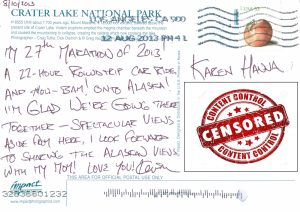 8/10/2013
CRATER LAKE NATIONAL PARK
LOS ANGELES CA 900
12 AUG 2013 PM 4 L
MY 27th MARATHON OF 2013.
A 22-HOUR ROUNDTRIP CAR RIDE,
AND POW-BAM! ONTO ALASKA!
I'M GLAD WE'RE GOING THERE
TOGETHER - SPECTACULAR VIEWS
ASIDE FROM HERE, I LOOK FORWARD
TO SHARING THE ALASKAN VIEWS
WITH MY MOM! LOVE YOU!
KAREN HANNA
CONTENT CONTROL
CENSORED
CONTENT CONTROL
impact
THIS AREA FOR OFFICIAL POSTAL USE ONLY
32936601232